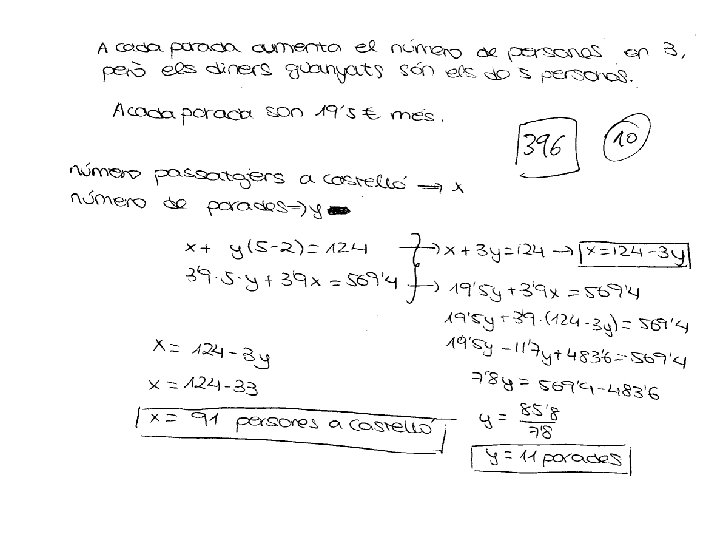 A cada parada aumenta el número de persones en 3,
però els diners guanyats són els de 5 persones.
A cada parada son 19'5 € més.
396
10
número passatgers a castelló → x
número de parades → y
x + y(5-2) = 124 → x + 3y = 124 → x = 124 - 3y
3'9 · 5 · y + 3'9x = 569'4 → 19'5y + 3'9x = 569'4
19'5y + 3'9 · (124 - 3y) = 569'4
19'5y - 11'7y + 483'6 = 569'4
7'8y = 569'4 - 483'6
y = 85'8 / 7'8
y = 11 parades
x = 124 - 3y
x = 124 - 33
x = 91 persones a castelló